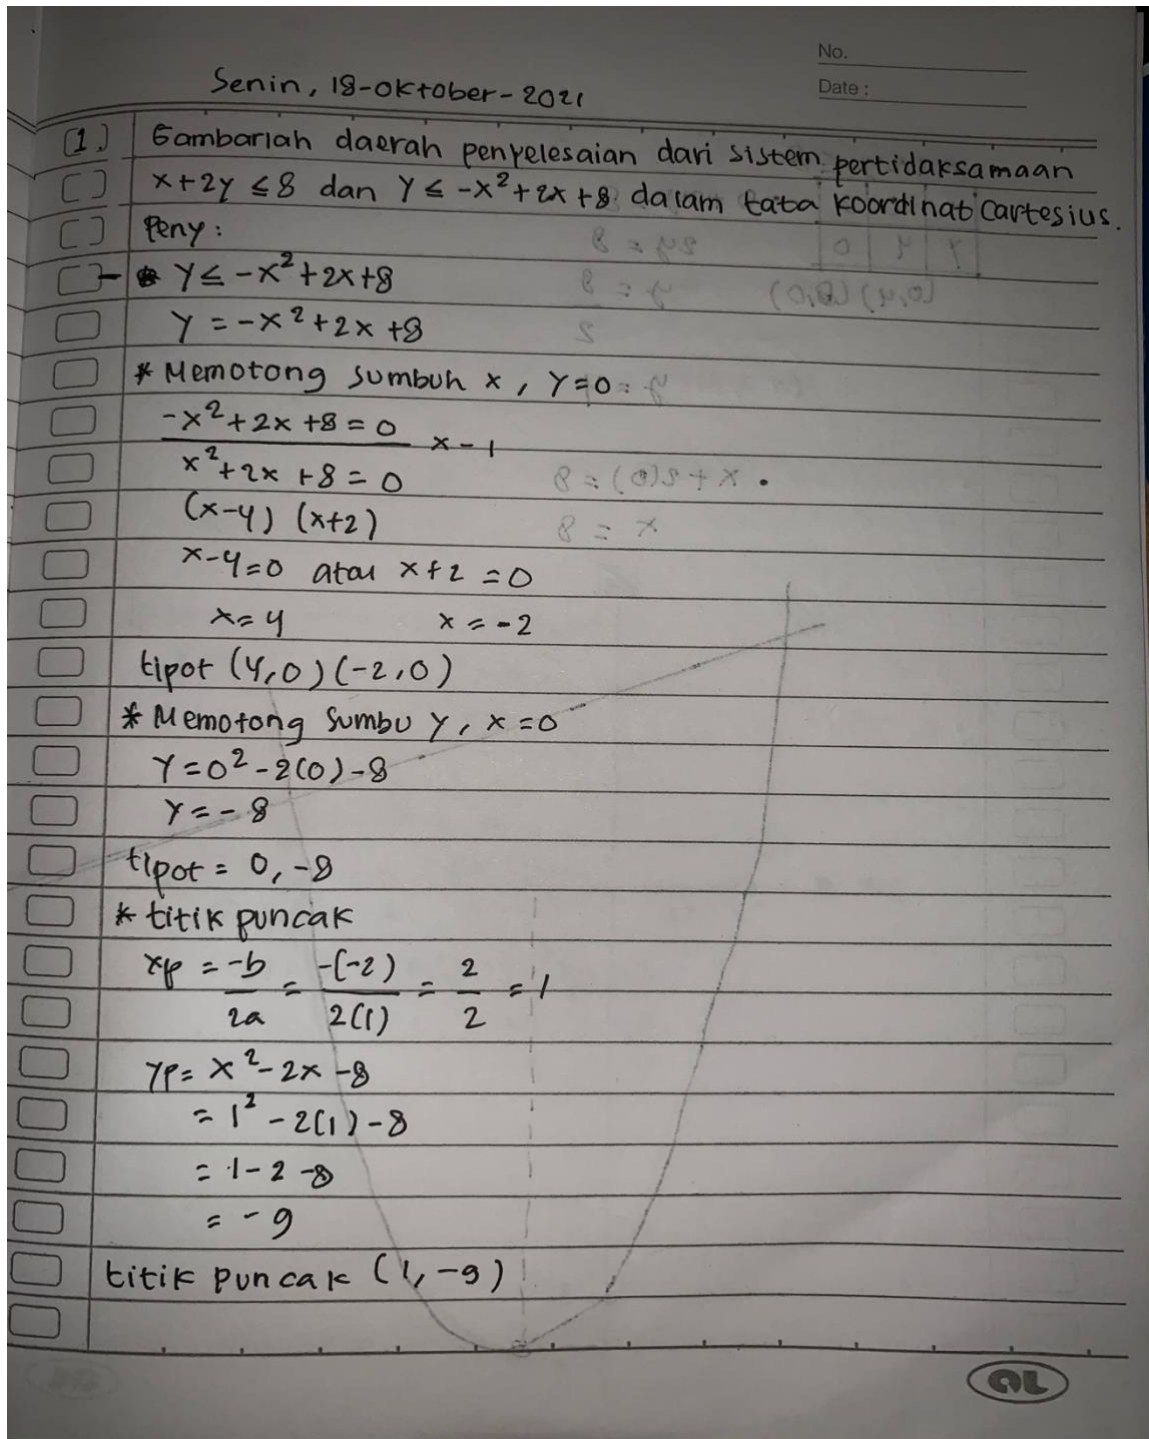 No.
Date :
Senin, 18-oktober-2021
1.) Gambarlah daerah penyelesaian dari sistem pertidaksamaan
x+2y ≤ 8 dan y ≤ -x²+2x+8 dalam tata koordinat Cartesius.
Peny :
- * y ≤ -x²+2x+8
y = -x²+2x+8
* Memotong sumbuh x, y=0
-x²+2x+8=0
x -1
x²+2x+8=0
(x-4) (x+2)
x-4=0 atau x+2=0
x=4 x=-2
tipot (4,0) (-2,0)
* Memotong sumbu y, x=0
y=0²-2(0)-8
y=-8
tipot = 0,-8
* titik puncak
xp = -b/2a = -(-2)/2(1) = 2/2 = 1
yp= x²-2x-8
= 1²-2(1)-8
= 1-2-8
= -9
titik puncak (1,-9)